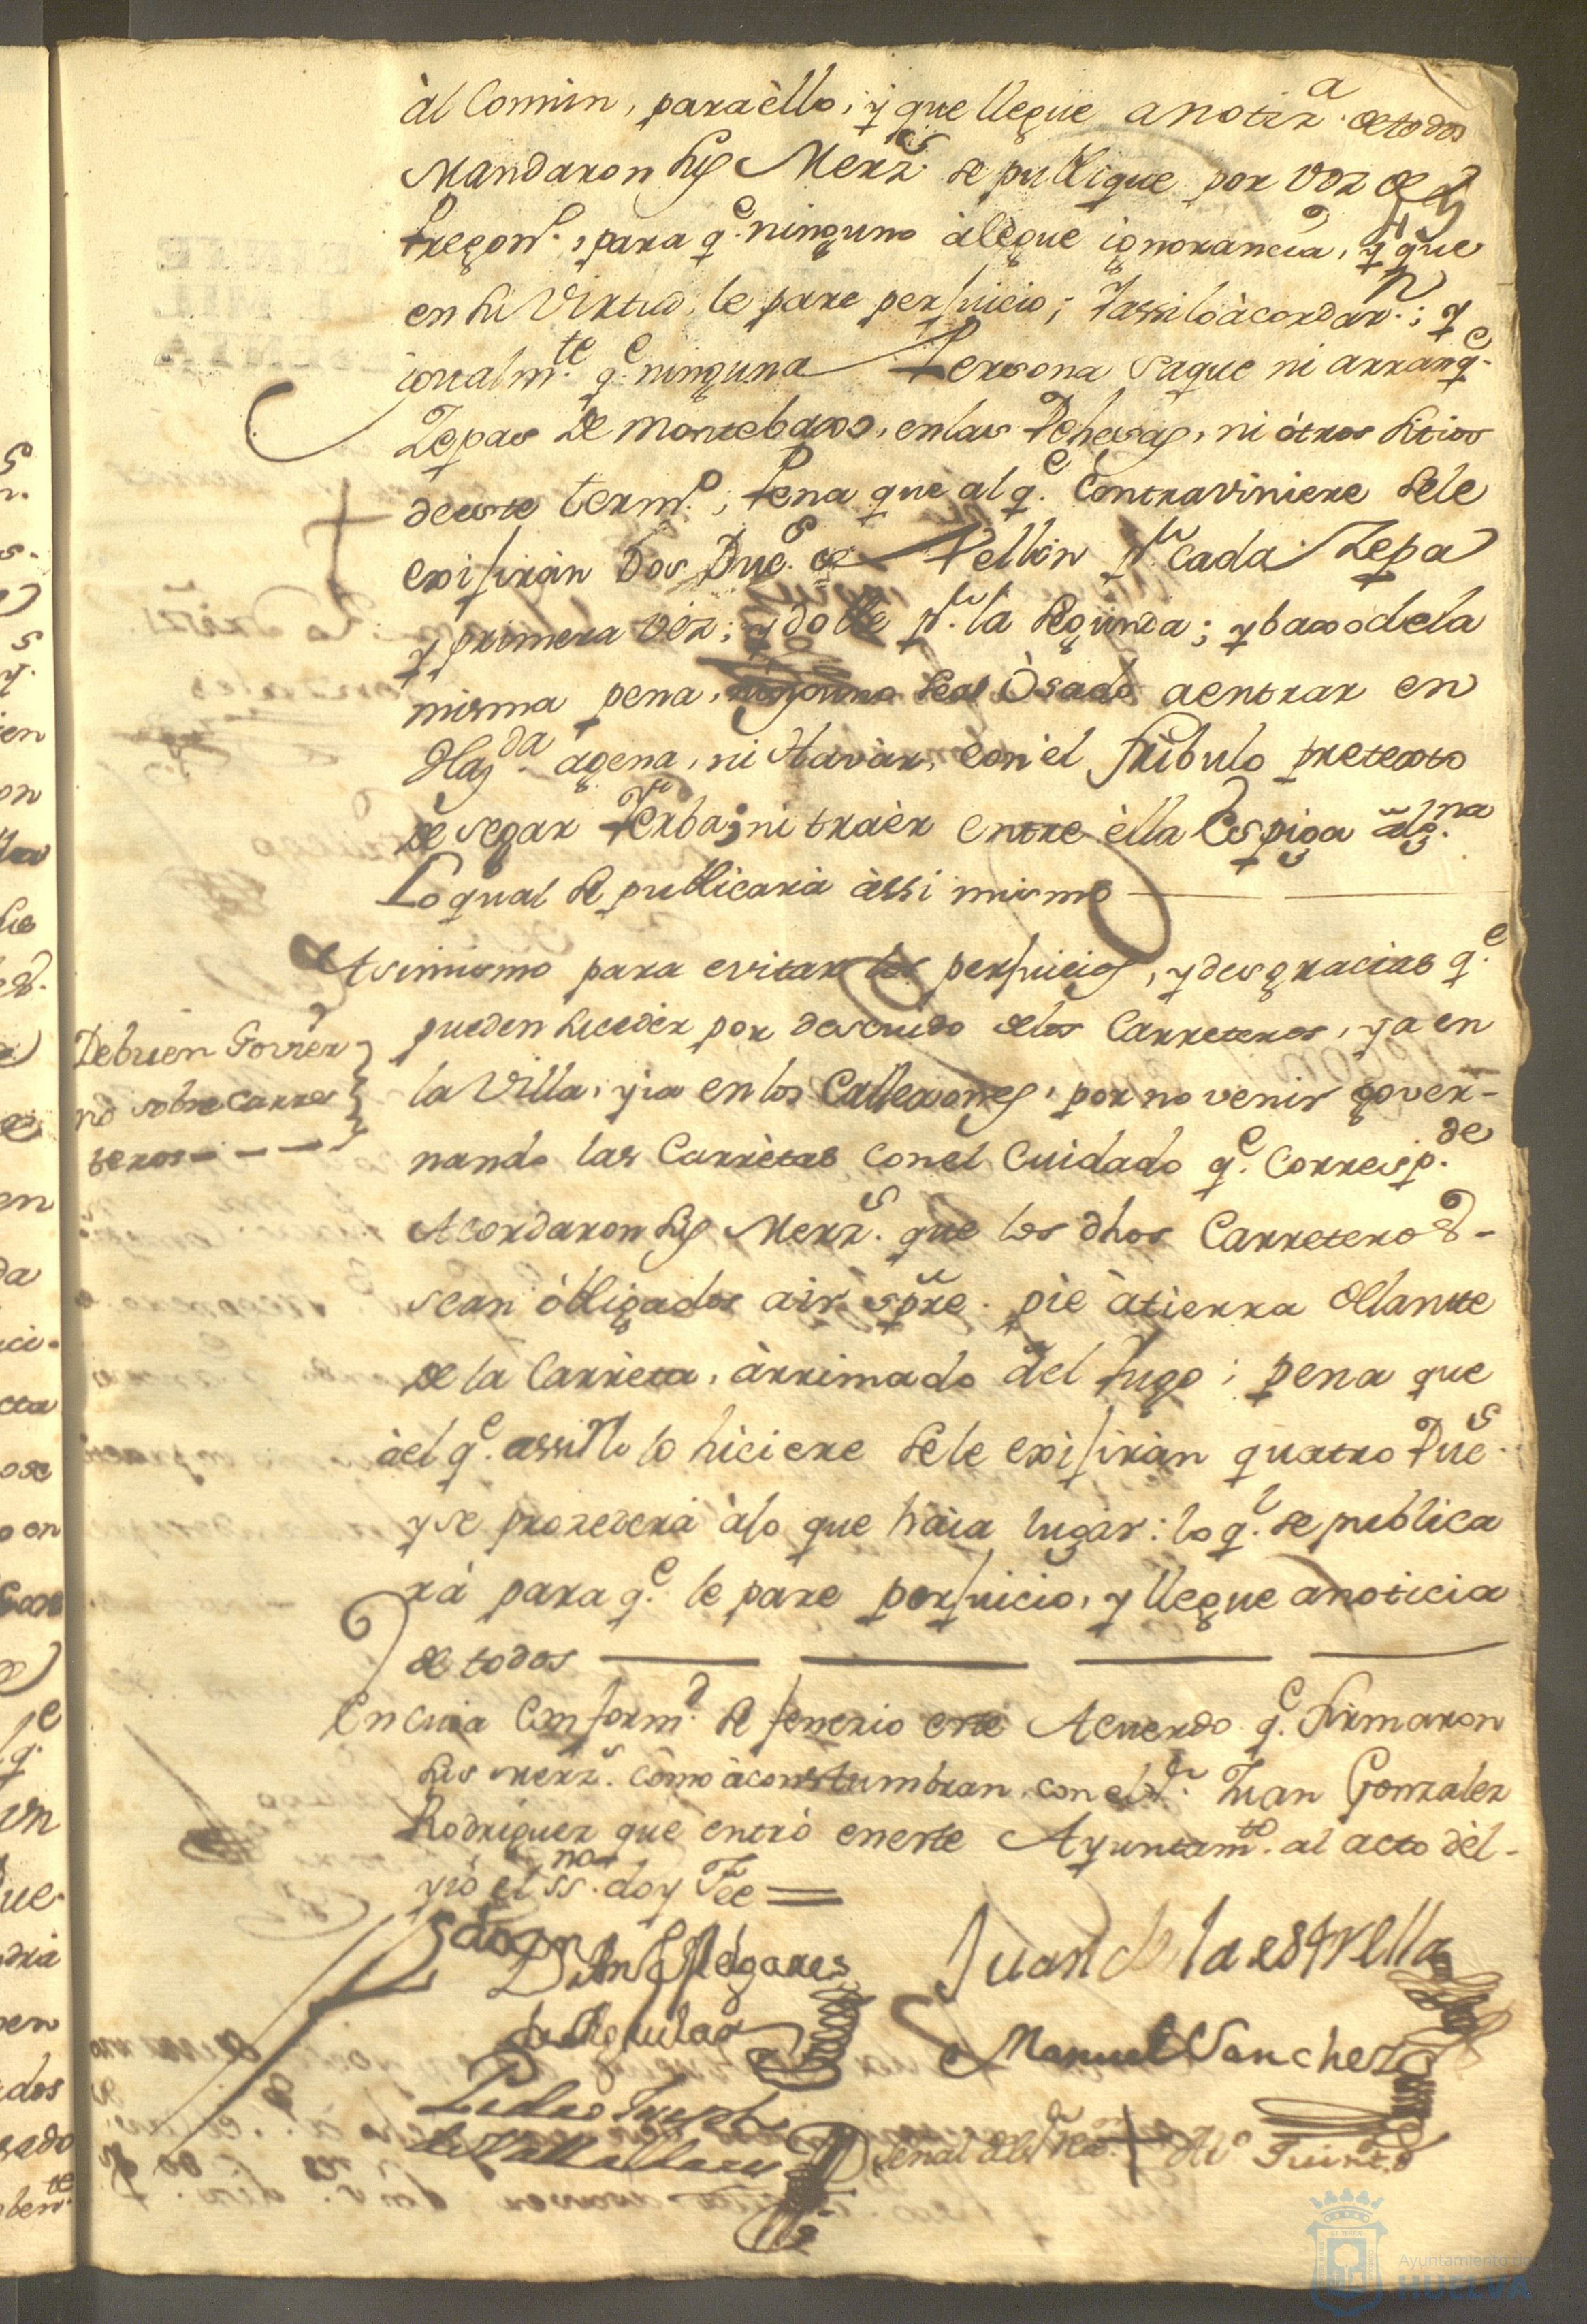 àl Comùn, para èllo, y que llegue a notiz.ª de todos
Mandaron sus Merz.s se publique por voz de
Pregon.º, para q.e ninguno àlegue ignorancia, y que
en su Virtud, le pare perjuicio; Y assi lo àcordar.n; y
igualm.te q.e ninguna Persona saque ni arranq.e
Zepas de monte baxo, en las Dehesas, ni òtros sitios
de este term.o; Pena que al q.e Contraviniere se le
exijiràn Dos Duc.s de Vellòn p.r cada Zepa
y primera vez; y doble p.r la segunda; y baxo de la
misma pena, ninguno sea Òsado a entrar en
Haz.da agena, ni Havàr, con èl fribulo pretexto
de segar Yerba; ni traèr entre èlla Espiga àlg.na
Lo qual se publicarà àssi mismo
Debuen Gover
nò sobre Carre
teros
Asimismo para evitar los perjuicios, y desgracias q.e
pueden suceder por descuido de los Carreteros, ya en
la Villa, y ia en los Callexones, por no venir gover-
nando las Carrètas con el Cuidado q.e Corresp.de
Acordaron sus Merz.s que los dhos Carreteros
sean òbligados a ir spre. piè à tierra delante
de la Carrèta, àrrimado àel Yugo; pena que
àel q.e assi no lo hiciere se le exijiràn quatro Duc.s
y se procederà àlo que hàia lugàr: lo q.l se publica
rà para q.e le pare perjuicio, y llegue a noticia
de todos
En cuia Conform.d se feneziò este Acuerdo q.e firmaron
sus merz.s como àcostumbran, con el S.r Juan Gonzalez
Rodriguez que entrò en este Ayuntam.to al acto dèl-
y iò el ss.no doy Fee =
Juan de la estrella
de Aguilar
Manuel Sanchez
Pedro Joseph
Señal del S.r Reg.r + Al.o Juint.o
Ayuntamiento de
HUELVA